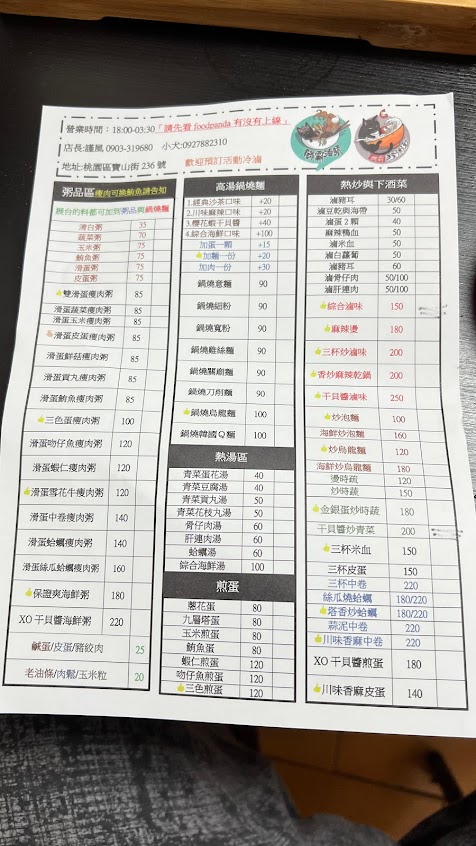 營業時間：18:00-03:30「請先看 foodpanda 有沒有上線」
店長:謹胤 0903-319680 小犬:0927882310
地址:桃園區寶山街 236 號 歡迎預訂活動冷滷
粥品區 瘦肉可換鮪魚請告知
機台的料都可加到粥品與鍋燒麵
清白粥 35
蔬菜粥 70
玉米粥 75
鮪魚粥 75
滑蛋粥 75
皮蛋粥 75
雙滑蛋瘦肉粥 85
滑蛋蔬菜瘦肉粥 85
滑蛋玉米瘦肉粥 85
滑蛋皮蛋瘦肉粥 85
滑蛋鮮菇瘦肉粥 85
滑蛋貢丸瘦肉粥 85
滑蛋鮪魚瘦肉粥 85
三色蛋瘦肉粥 100
滑蛋吻仔魚瘦肉粥 120
滑蛋蝦仁瘦肉粥 120
滑蛋雪花牛瘦肉粥 120
滑蛋中卷瘦肉粥 140
滑蛋蛤蠣瘦肉粥 140
滑蛋絲瓜蛤蠣瘦肉粥 160
保證爽海鮮粥 120
XO 干貝醬海鮮粥 220
鹹蛋/皮蛋/豬絞肉 25
老油條/肉鬆/玉米粒 20
高湯鍋燒麵
1.經典沙茶口味 +20
2.川味麻辣口味 +20
3.櫻花蝦干貝醬 +40
4.綜合海鮮口味 +100
加蛋一顆 +15
加麵一份 +20
加肉一份 +30
鍋燒意麵 90
鍋燒細粉 90
鍋燒寬粉 90
鍋燒雞絲麵 90
鍋燒關廟麵 90
鍋燒刀削麵 90
鍋燒烏龍麵 100
鍋燒韓國Q麵 100
熱湯區
青菜蛋花湯 40
青菜豆腐湯 40
青菜貢丸湯 50
青菜花枝丸湯 50
骨仔肉湯 60
肝連肉湯 60
蛤蠣湯 60
綜合海鮮湯 100
煎蛋
蔥花蛋 80
九層塔蛋 80
玉米煎蛋 80
鮪魚蛋 80
蝦仁煎蛋 120
吻仔魚煎蛋 120
三色煎蛋 120
熱炒與下酒菜
滷豬耳 30/60
滷豆乾與海帶 50
滷蛋 2 顆 40
麻辣鴨血 50
滷米血 50
滷白蘿蔔 50
滷豬耳 60
滷骨仔肉 50/100
滷肝連肉 50/100
綜合滷味 150
麻辣燙 180
三杯炒滷味 200
香炒麻辣乾鍋 200
干貝醬滷味 250
炒泡麵 100
海鮮炒泡麵 160
炒烏龍麵 120
海鮮炒烏龍麵 180
燙時蔬 120
炒時蔬 150
金銀蛋炒時蔬 180
干貝醬炒青菜 200
三杯米血 150
三杯皮蛋 150
三杯中卷 220
絲瓜燒蛤蠣 180/220
塔香炒蛤蠣 180/220
蒜泥中卷 220
川味香麻中卷 220
XO 干貝醬煎蛋 180
川味香麻皮蛋 140